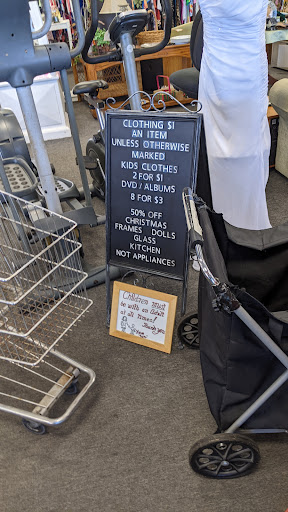 CLOTHING $1
AN ITEM
UNLESS OTHERWISE
MARKED
KIDS CLOTHES
2 FOR $1
DVD / ALBUMS
8 FOR $3
50% OFF
CHRISTMAS
FRAMES DOLLS
GLASS
KITCHEN
NOT APPLIANCES
Children must
be with an Adult
at all times!
Thank
you